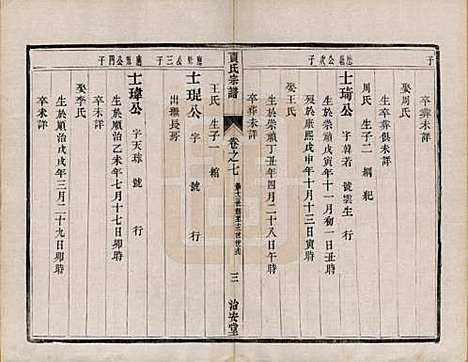 子
卒葬未詳
娶周氏
生卒葬俱未詳
周氏 生子二 綱 紀
公次子
士琦公 字韓若 號雲生 行
生於崇禎戊寅年十一月初一日丑時
卒於康熙戊申年十月十三日寅時
生於崇禎丁丑年四月二十八日午時
卒葬未詳
賈氏宗譜
卷之七
三
治安堂
王氏 生子一 綰
公三子
士瑅公 字 號 行
出繼長房
公四子
士瑋公 字天球 號 行
生於順治乙未年七月十七日卯時
卒未詳
娶李氏
生於順治戊戌年三月二十九日卯時
卒未詳